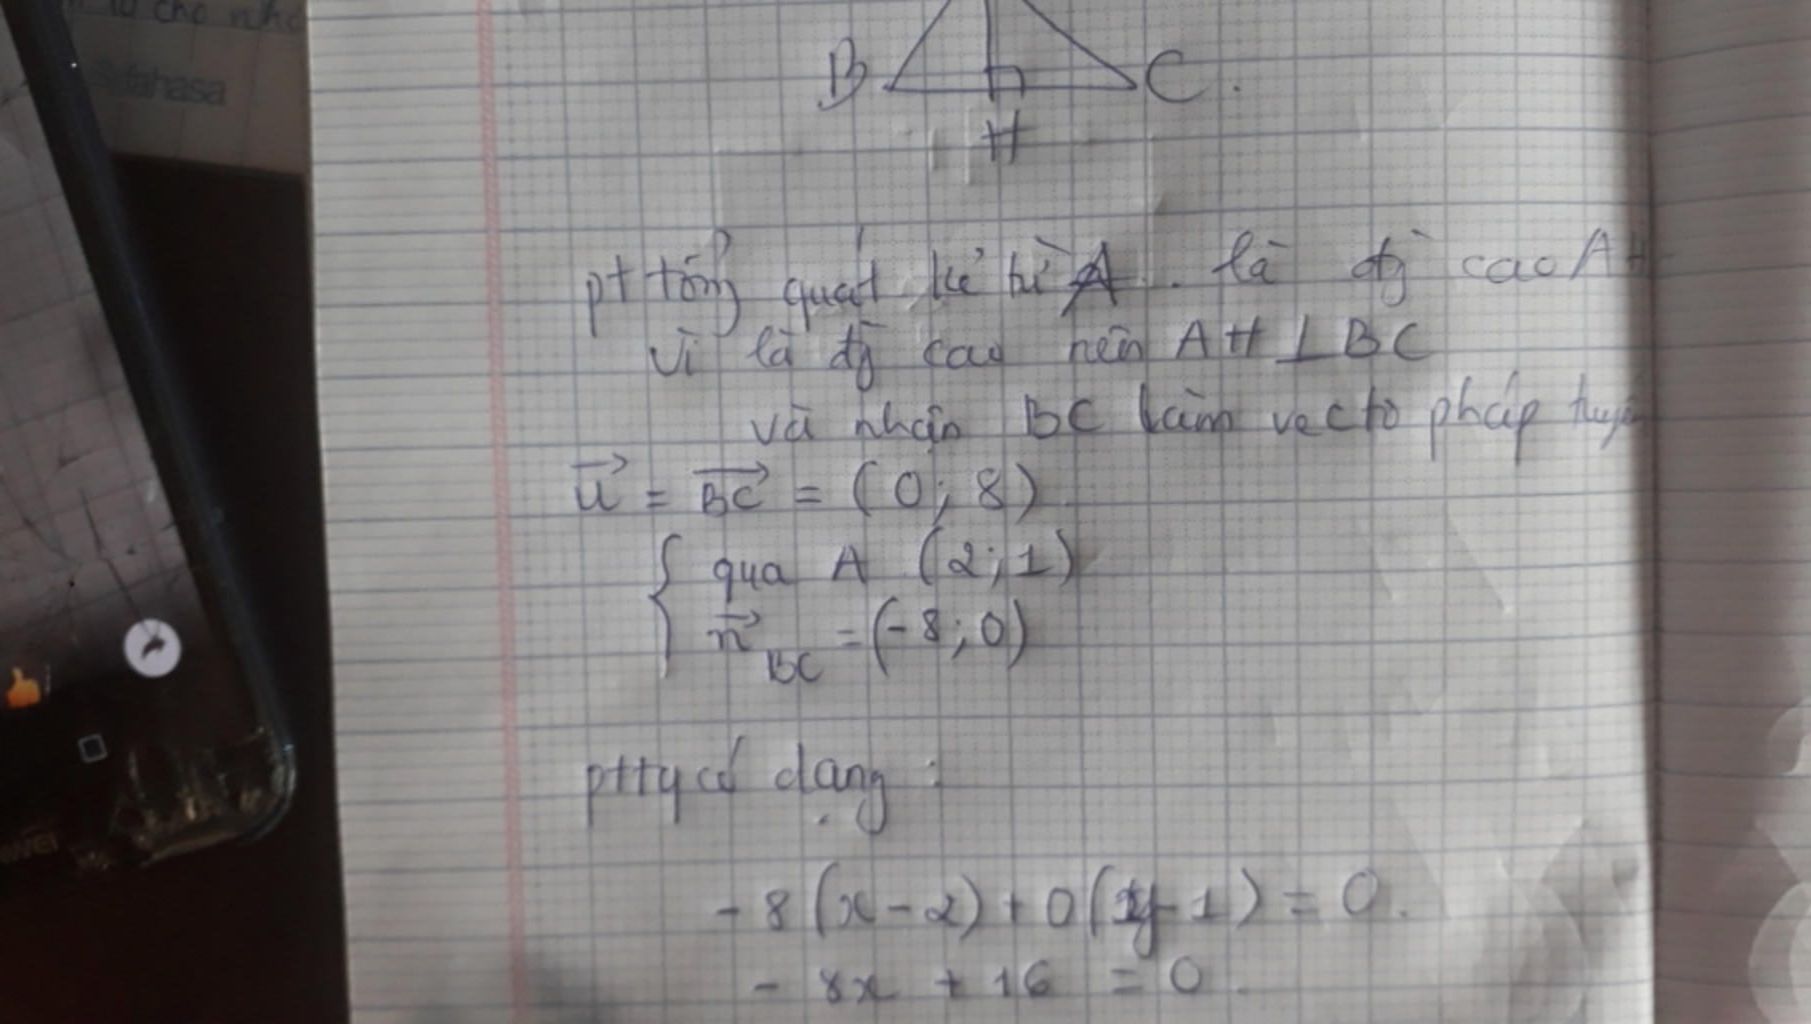 cho nhe
fahasa
B C.
H
pt tổng quát kẻ từ A. là đg cao AH
vì là đg cao nên AH ⊥ BC
và nhận BC làm vectơ pháp tuyến
u→ = BC→ = (0; 8)
{ qua A (2; 1)
n→ BC = (-8; 0)
pttq có dạng :
- 8 (x - 2) + 0 (y - 1) = 0.
- 8x + 16 = 0.